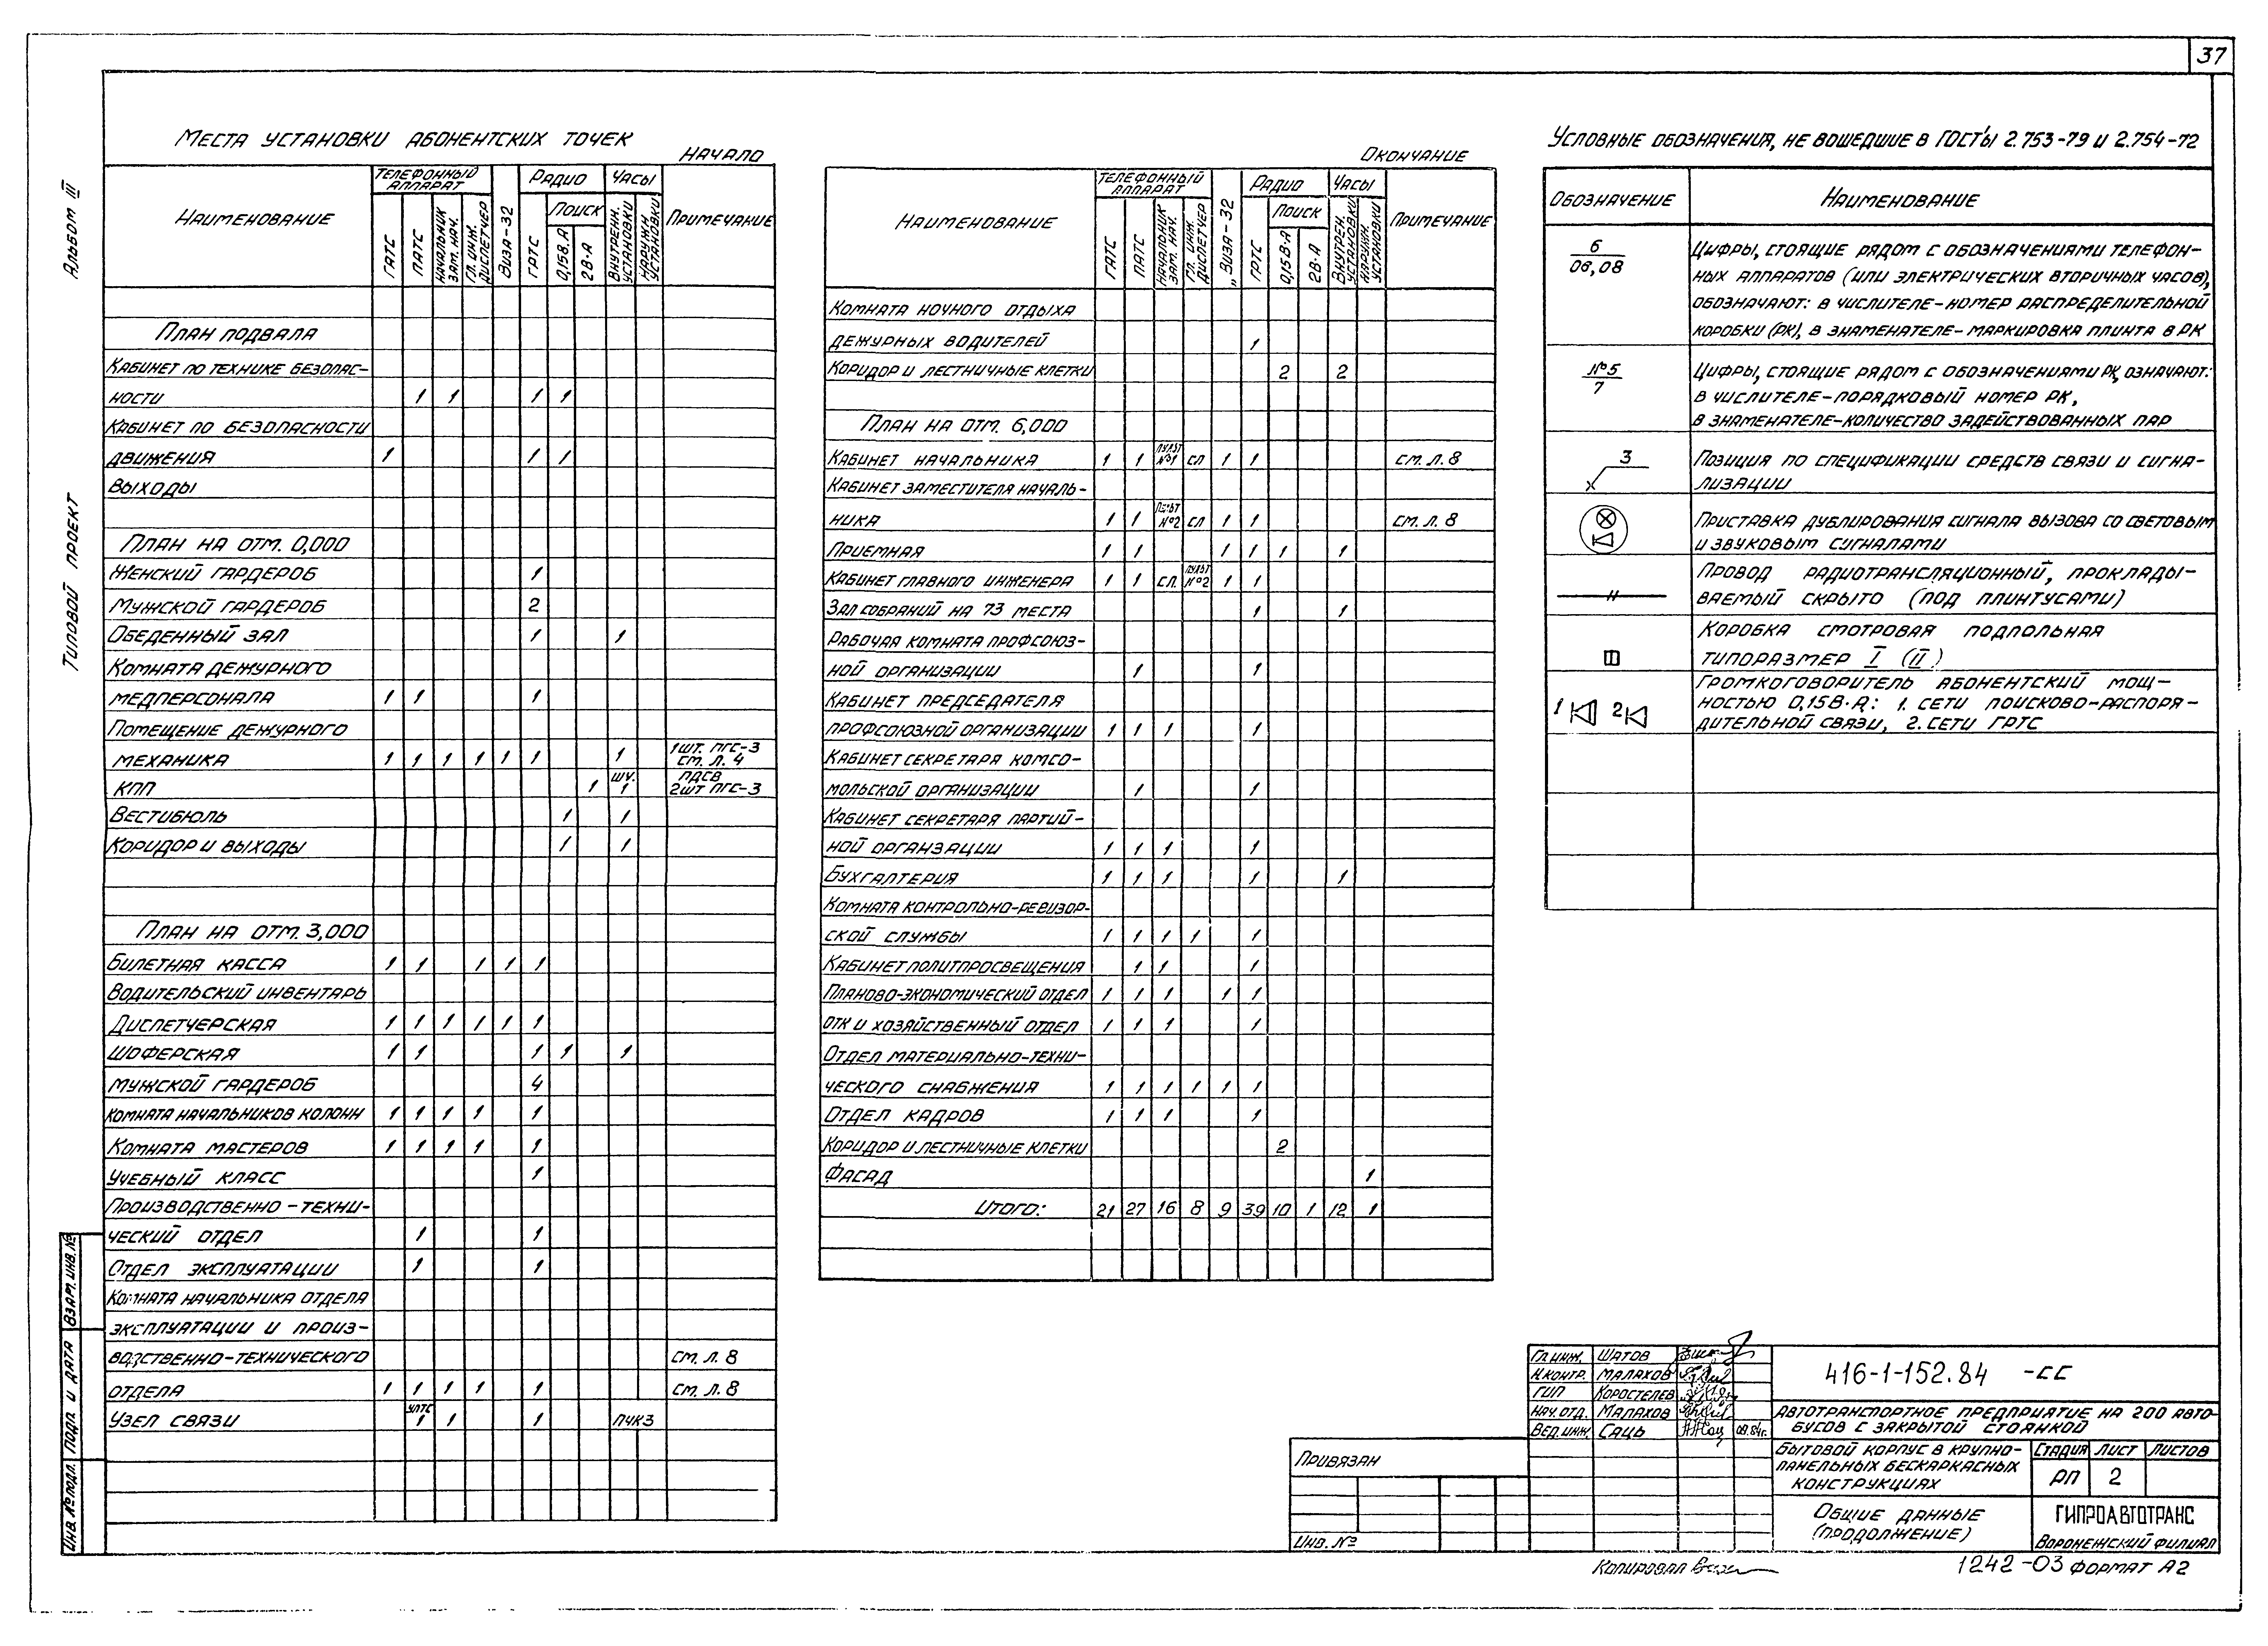 37
Альбом III
Типовой проект
Взам. инв. №
Подп. и дата
Инв. № подл.
Места установки абонентских точек
Начало
Наименование | Телефонный аппарат | Виза-32 | Радио | Часы | Примечание
ГАТС | ПАТС | Начальник зам. нач. | Гл. инж. диспетчер | ГРТС | Поиск | 0,15В.А | 2В.А | Внутрен. установки | Наружн. установки
План подвала
Кабинет по технике безопас-
ности 1 1 1 1
Кабинет по безопасности
движения 1 1 1
Выходы
План на отм. 0,000
Женский гардероб 1
Мужской гардероб 2
Обеденный зал 1 1
Комната дежурного
медперсонала 1 1 1
Помещение дежурного
механика 1 1 1 1 1 1 1 1шт. ПГС-3 см. л. 4
КПП 1 шу. 1 ПДСВ 2шт ПГС-3
Вестибюль 1 1
Коридор и выходы 1 1
План на отм. 3,000
Билетная касса 1 1 1 1 1
Водительский инвентарь
Диспетчерская 1 1 1 1 1 1
Шоферская 1 1 1 1 1
Мужской гардероб 4
Комната начальников колонн 1 1 1 1 1
Комната мастеров 1 1 1 1 1
Учебный класс 1
Производственно-техни-
ческий отдел 1 1
Отдел эксплуатации 1 1
Комната начальника отдела
эксплуатации и произ-
водственно-технического см. л. 8
отдела 1 1 1 1 1 см. л. 8
Узел связи УПТС 1 1 1 ПЧКЗ
Окончание
Наименование | Телефонный аппарат | „Виза-32 | Радио | Часы | Примечание
ГАТС | ПАТС | Начальник зам. нач. | Гл. инж. диспетчер | ГРТС | Поиск | 0,15В.А | 2В.А | Внутрен. установки | Наружн. установки
Комната ночного отдыха
дежурных водителей 1
Коридор и лестничные клетки 2 2
План на отм. 6,000
Кабинет начальника 1 1 пульт №1 СЛ 1 1 см. л. 8
Кабинет заместителя началь-
ника 1 1 пульт №2 СЛ 1 1 см. л. 8
Приемная 1 1 1 1 1 1
Кабинет главного инженера 1 1 СЛ. пульт №2 1 1
Зал собраний на 73 места 1 1
Рабочая комната профсоюз-
ной организации 1 1
Кабинет председателя
профсоюзной организации 1 1 1 1
Кабинет секретаря комсо-
мольской организации 1 1
Кабинет секретаря партий-
ной органзации 1 1 1 1
Бухгалтерия 1 1 1 1 1
Комната контрольно-ревизор-
ской службы 1 1 1 1 1
Кабинет политпросвещения 1 1 1
Планово-экономический отдел 1 1 1 1 1
ОТК и хозяйственный отдел 1 1 1 1
Отдел материально-техни-
ческого снабжения 1 1 1 1 1 1
Отдел кадров 1 1 1 1
Коридор и лестничные клетки 2
Фасад 1
Итого: 21 27 16 8 9 39 10 1 12 1
Условные обозначения, не вошедшие в ГОСТ'ы 2.753-79 и 2.754-72
Обозначение | Наименование
6
06,08
Цифры, стоящие рядом с обозначениями телефон-
ных аппаратов (или электрических вторичных часов),
обозначают: в числителе-номер распределительной
коробки (РК), в знаменателе-маркировка плинта в РК
№5
7
Цифры, стоящие рядом с обозначениями РК, означают:
в числителе-порядковый номер РК,
в знаменателе-количество задействованных пар
3
Позиция по спецификации средств связи и сигна-
лизации
Приставка дублирования сигнала вызова со световым
и звуковым сигналами
Провод радиотрансляционный, проклады-
ваемый скрыто (под плинтусами)
Коробка смотровая подпольная
типоразмер I (II)
1 2
Громкоговоритель абонентский мощ-
ностью 0,15В·А: 1. сети поисково-распоря-
дительной связи, 2. сети ГРТС
Гл. инж. Шатов
Н.контр. Малахов
ГИП Коростелев
Нач. отд. Малахов
Вед. инж. Саць 09.84г.
416-1-152.84 -СС
Автотранспортное предприятие на 200 авто-
бусов с закрытой стоянкой
Бытовой корпус в крупно-
панельных бескаркасных
конструкциях
Стадия | Лист | Листов
РП | 2
Общие данные
(продолжение)
ГИПРОАВТОТРАНС
Воронежский филиал
Привязан
Инв. №
Копировал
1242-03 формат А2